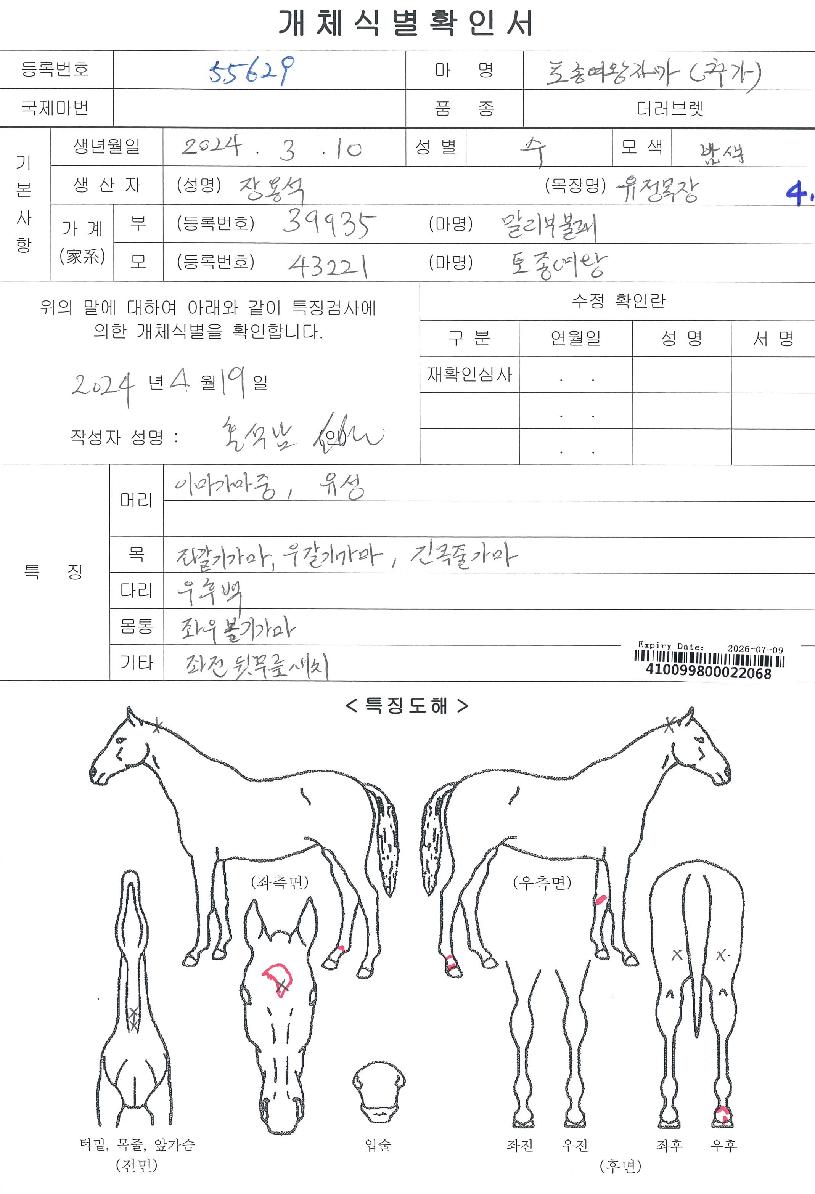 개체식별확인서
등록번호 55629 마 명 토종여왕자마 (국가)
국제마번 품 종 더러브렛
기본사항
생년월일 2024 . 3 . 10 성 별 수 모 색 밤색
생 산 자 (성명) 장용석 (목장명) 유정목장 4.
가 계 (家系) 부 (등록번호) 39935 (마명) 말리부볼래
모 (등록번호) 43221 (마명) 토종여왕
위의 말에 대하여 아래와 같이 특징검사에
의한 개체식별을 확인합니다.
2024 년 4 월 19 일
작성자 성명 : (인)
수정 확인란
구 분 연월일 성 명 서 명
재확인심사 . .
. .
. .
특 징
머리 이마가마중, 유성
목 좌갈기가마, 우갈기가마, 긴목줄가마
다리 우후백
몸통 좌우볼기가마
기타 좌전 뒷무릎새치
Expiry Date: 2026-07-09
410099800022068
< 특징도해 >
(좌측면) (우측면)
턱밑, 목줄, 앞가슴
(전면)
입술
좌전 우전 좌후 우후
(후면)